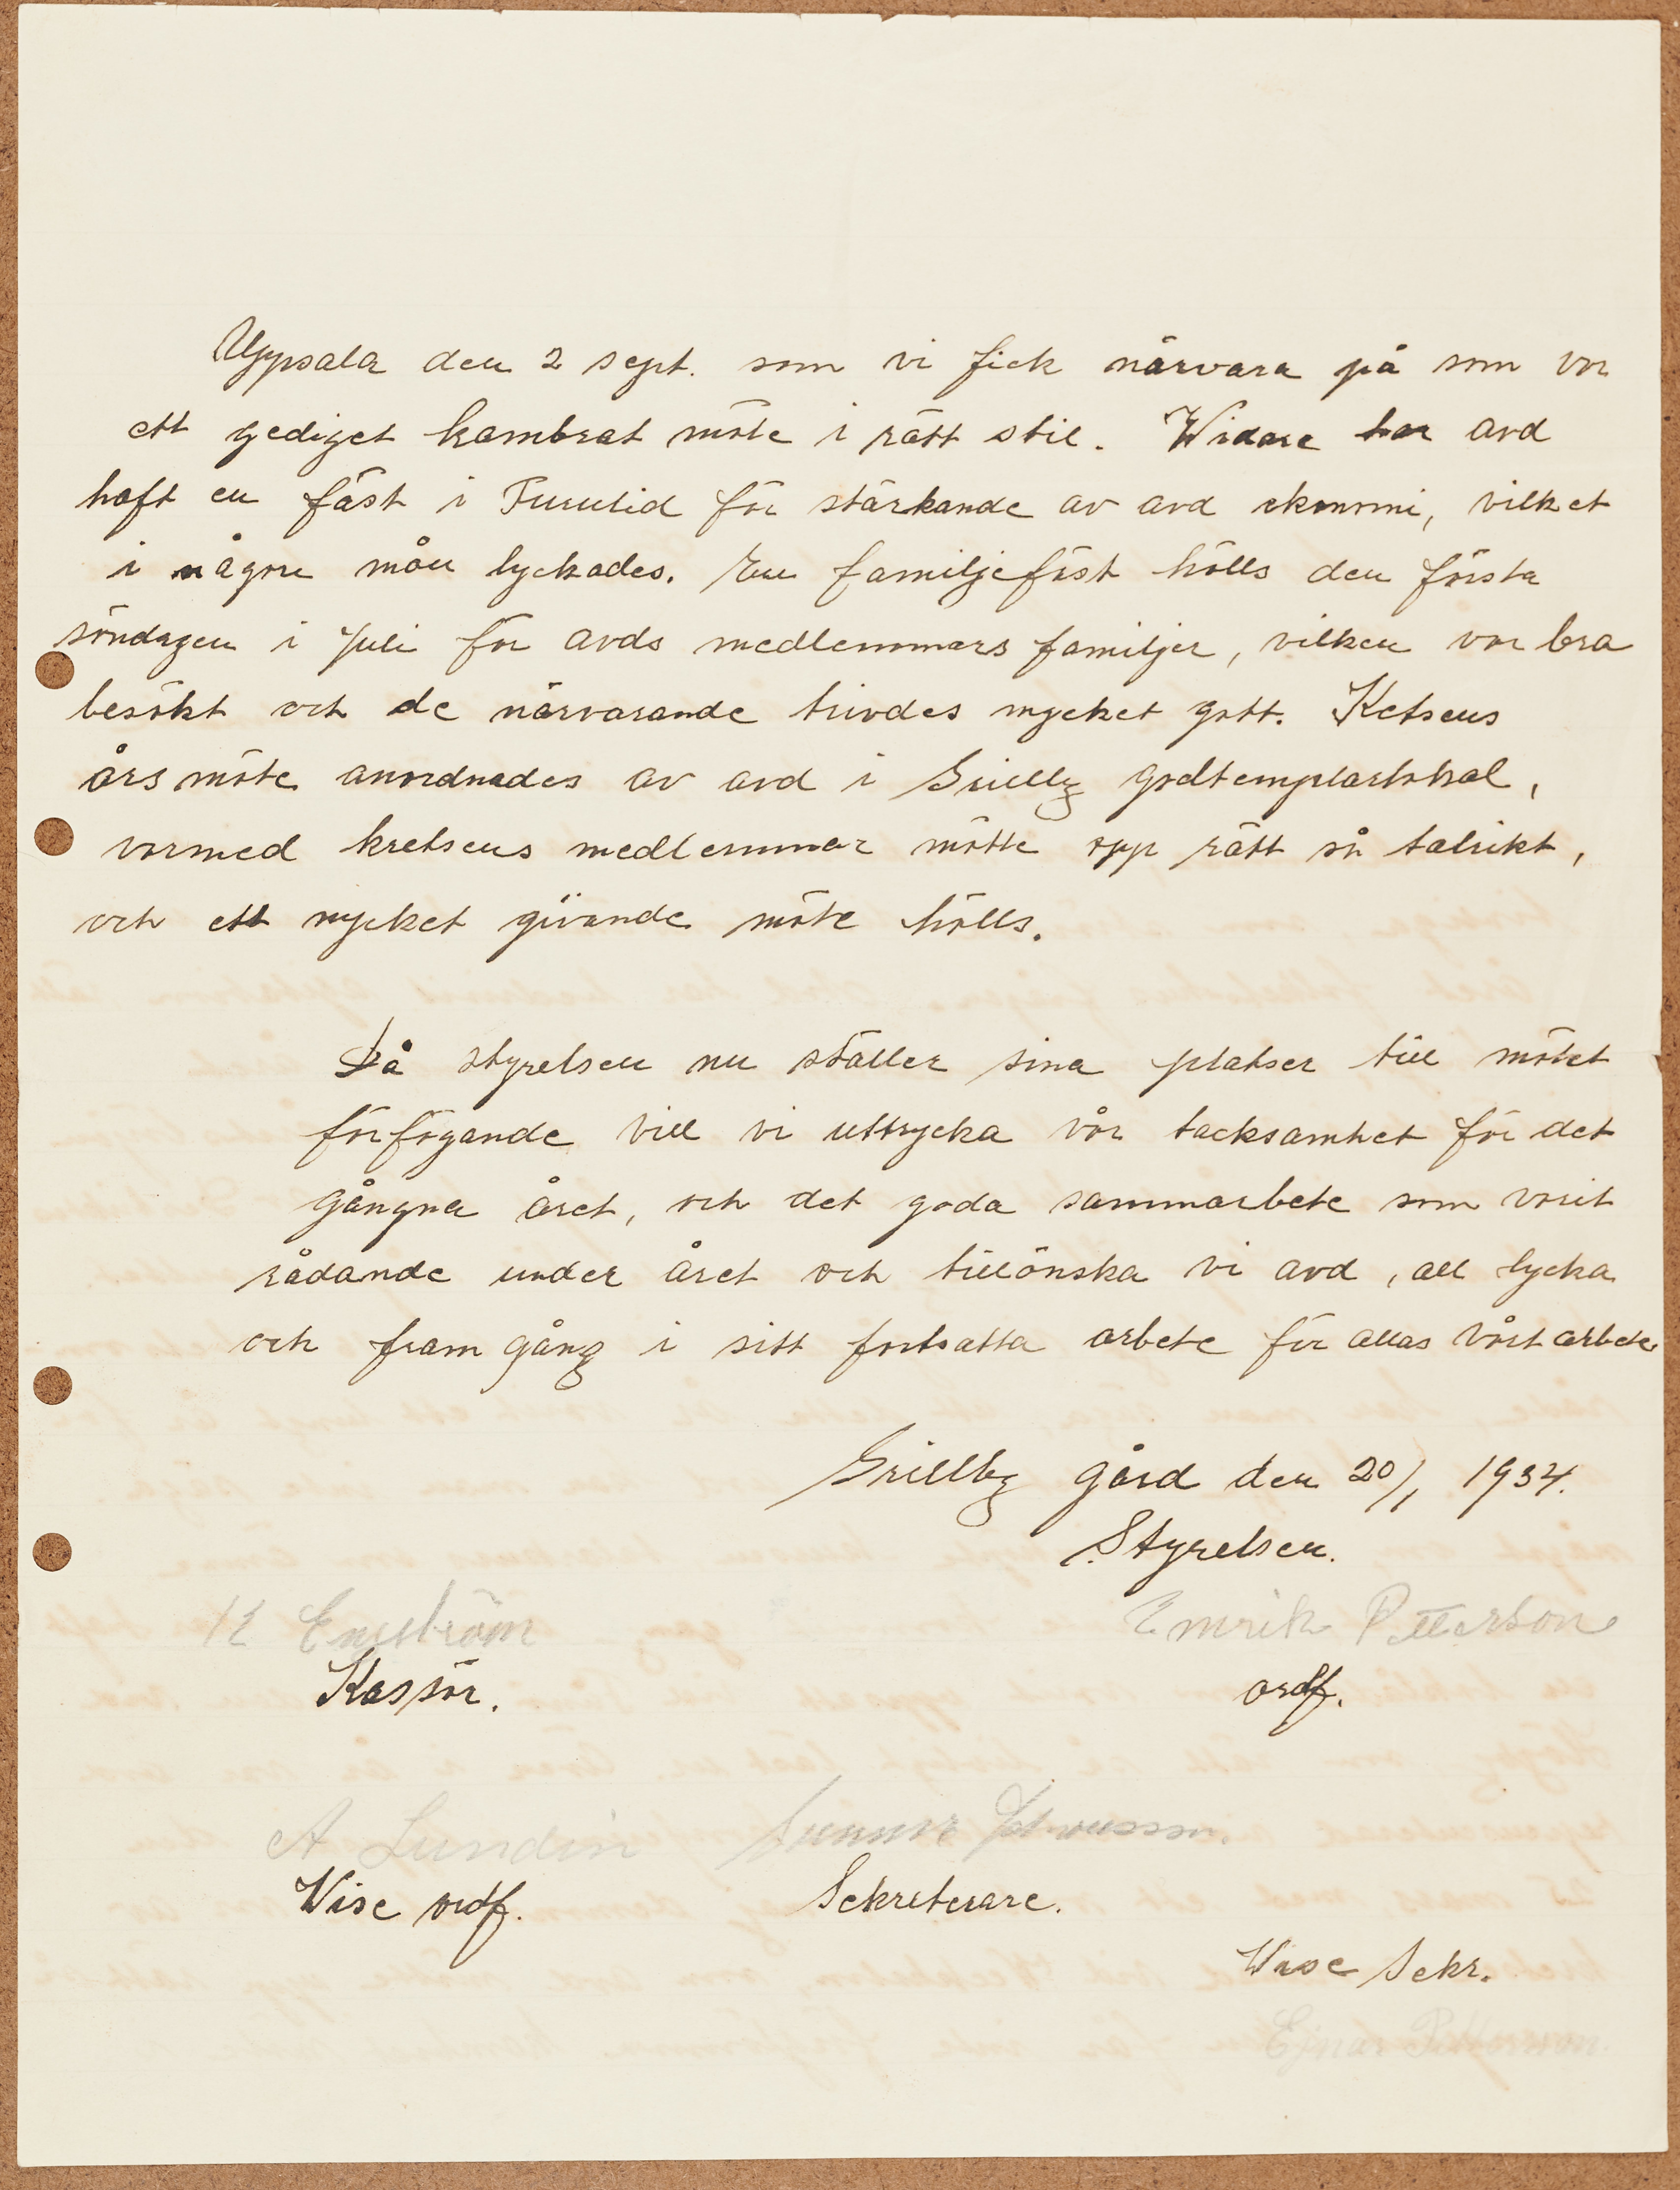 Uppsala den 2 sept. som vi fick närvara på som var
ett gediget kambrat möte i rätt stil. Widare har avd
haft en fäst i Furulid för stärkande av avd ekonomi, vilket
i någon mån lyckades. En familjefäst hölls den första
söndagen i Juli för avds medlemmars familjer, vilken var bra
besökt och de närvarande trivdes mycket gott. Ketsens
årsmöte anordnades av avd i Grillby godtemplarlokal,
varmed kretsens medlemmar mötte opp rätt så talrikt,
och ett mycket givande möte hölls.
Då styrelsen nu ställer sina platser till mötet
förfogande vill vi uttrycka vår tacksamhet för det
gångna året, och det goda sammarbete som varit
rådande under året och tillönska vi avd, all lycka
och fram gång i sitt fortsatta arbete för allas vårt arbete
Grillby gård den 20/1 1934.
Styrelsen.
K Engström Emrik Petterson
Kassör. ordf.
A Lundin Gunnar Johansson.
Wise ordf. Sekreterare.
Wise Sekr.
Ejnar Pettersson.